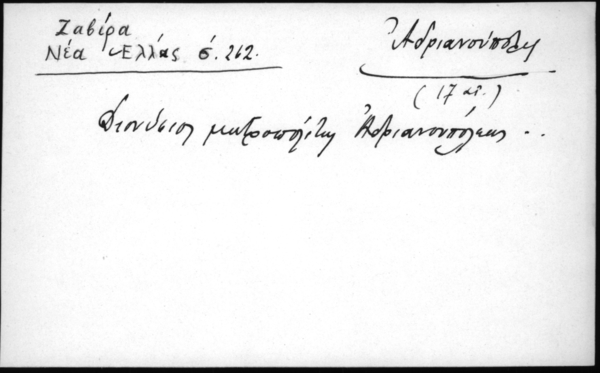 Ζαβίρα
Νέα Ἑλλάς σ. 262.
Ἀδριανούπολις
(17 αἰ.)
Διονύσιος μητροπολίτης Ἀδριανουπόλεως ..